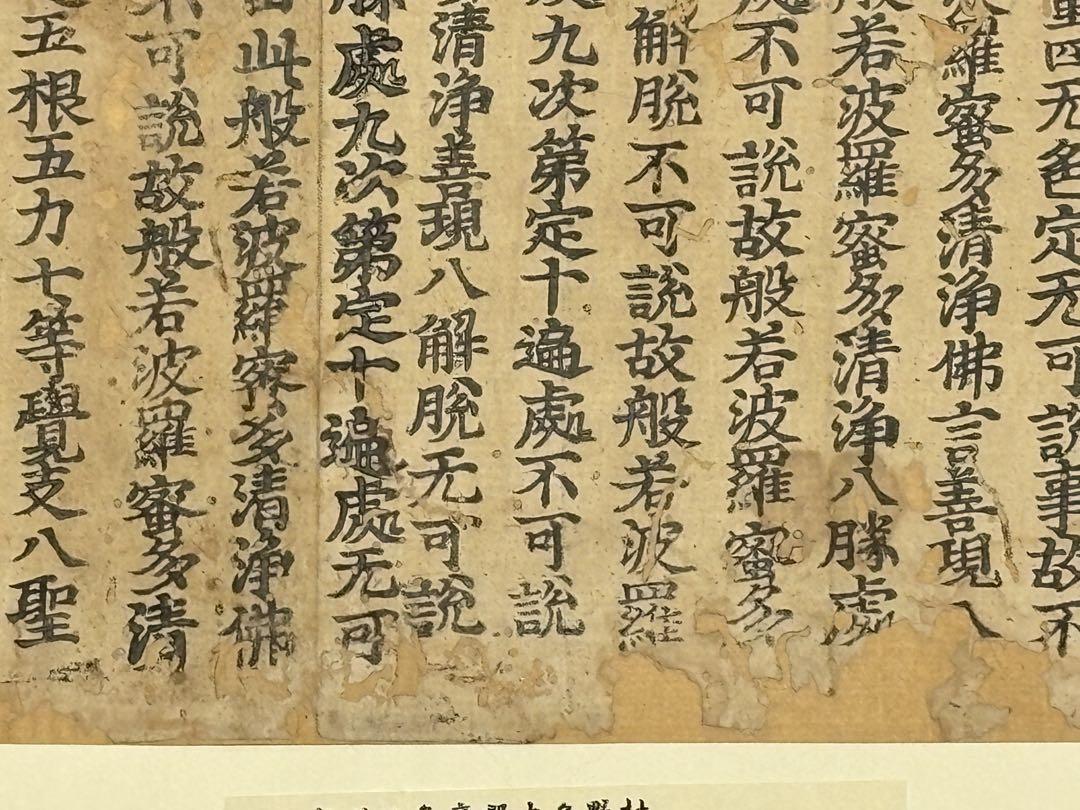 四无色定无可說事故不
羅蜜多清淨佛言善現八
若波羅蜜多清淨八勝處
不可說故般若波羅蜜多
解脫不可說故般若波羅
九次第定十遍處不可說
清淨善現八解脫无可說
處九次第定十遍處无可
此般若波羅蜜多清淨佛
可說故般若波羅蜜多清
五根五力七等覺支八聖